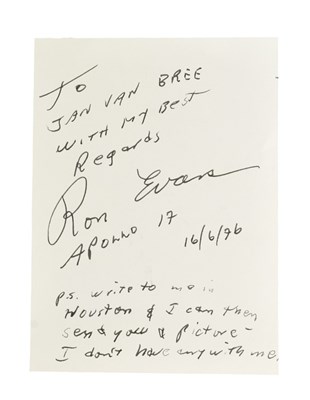 To
JAN VAN BREE
WITH MY BEST
Regards
Ron Evans
APOLLO 17
16/6/76
p.s. write to me in
Houston & I can then
send you a picture -
I don't have any with me.